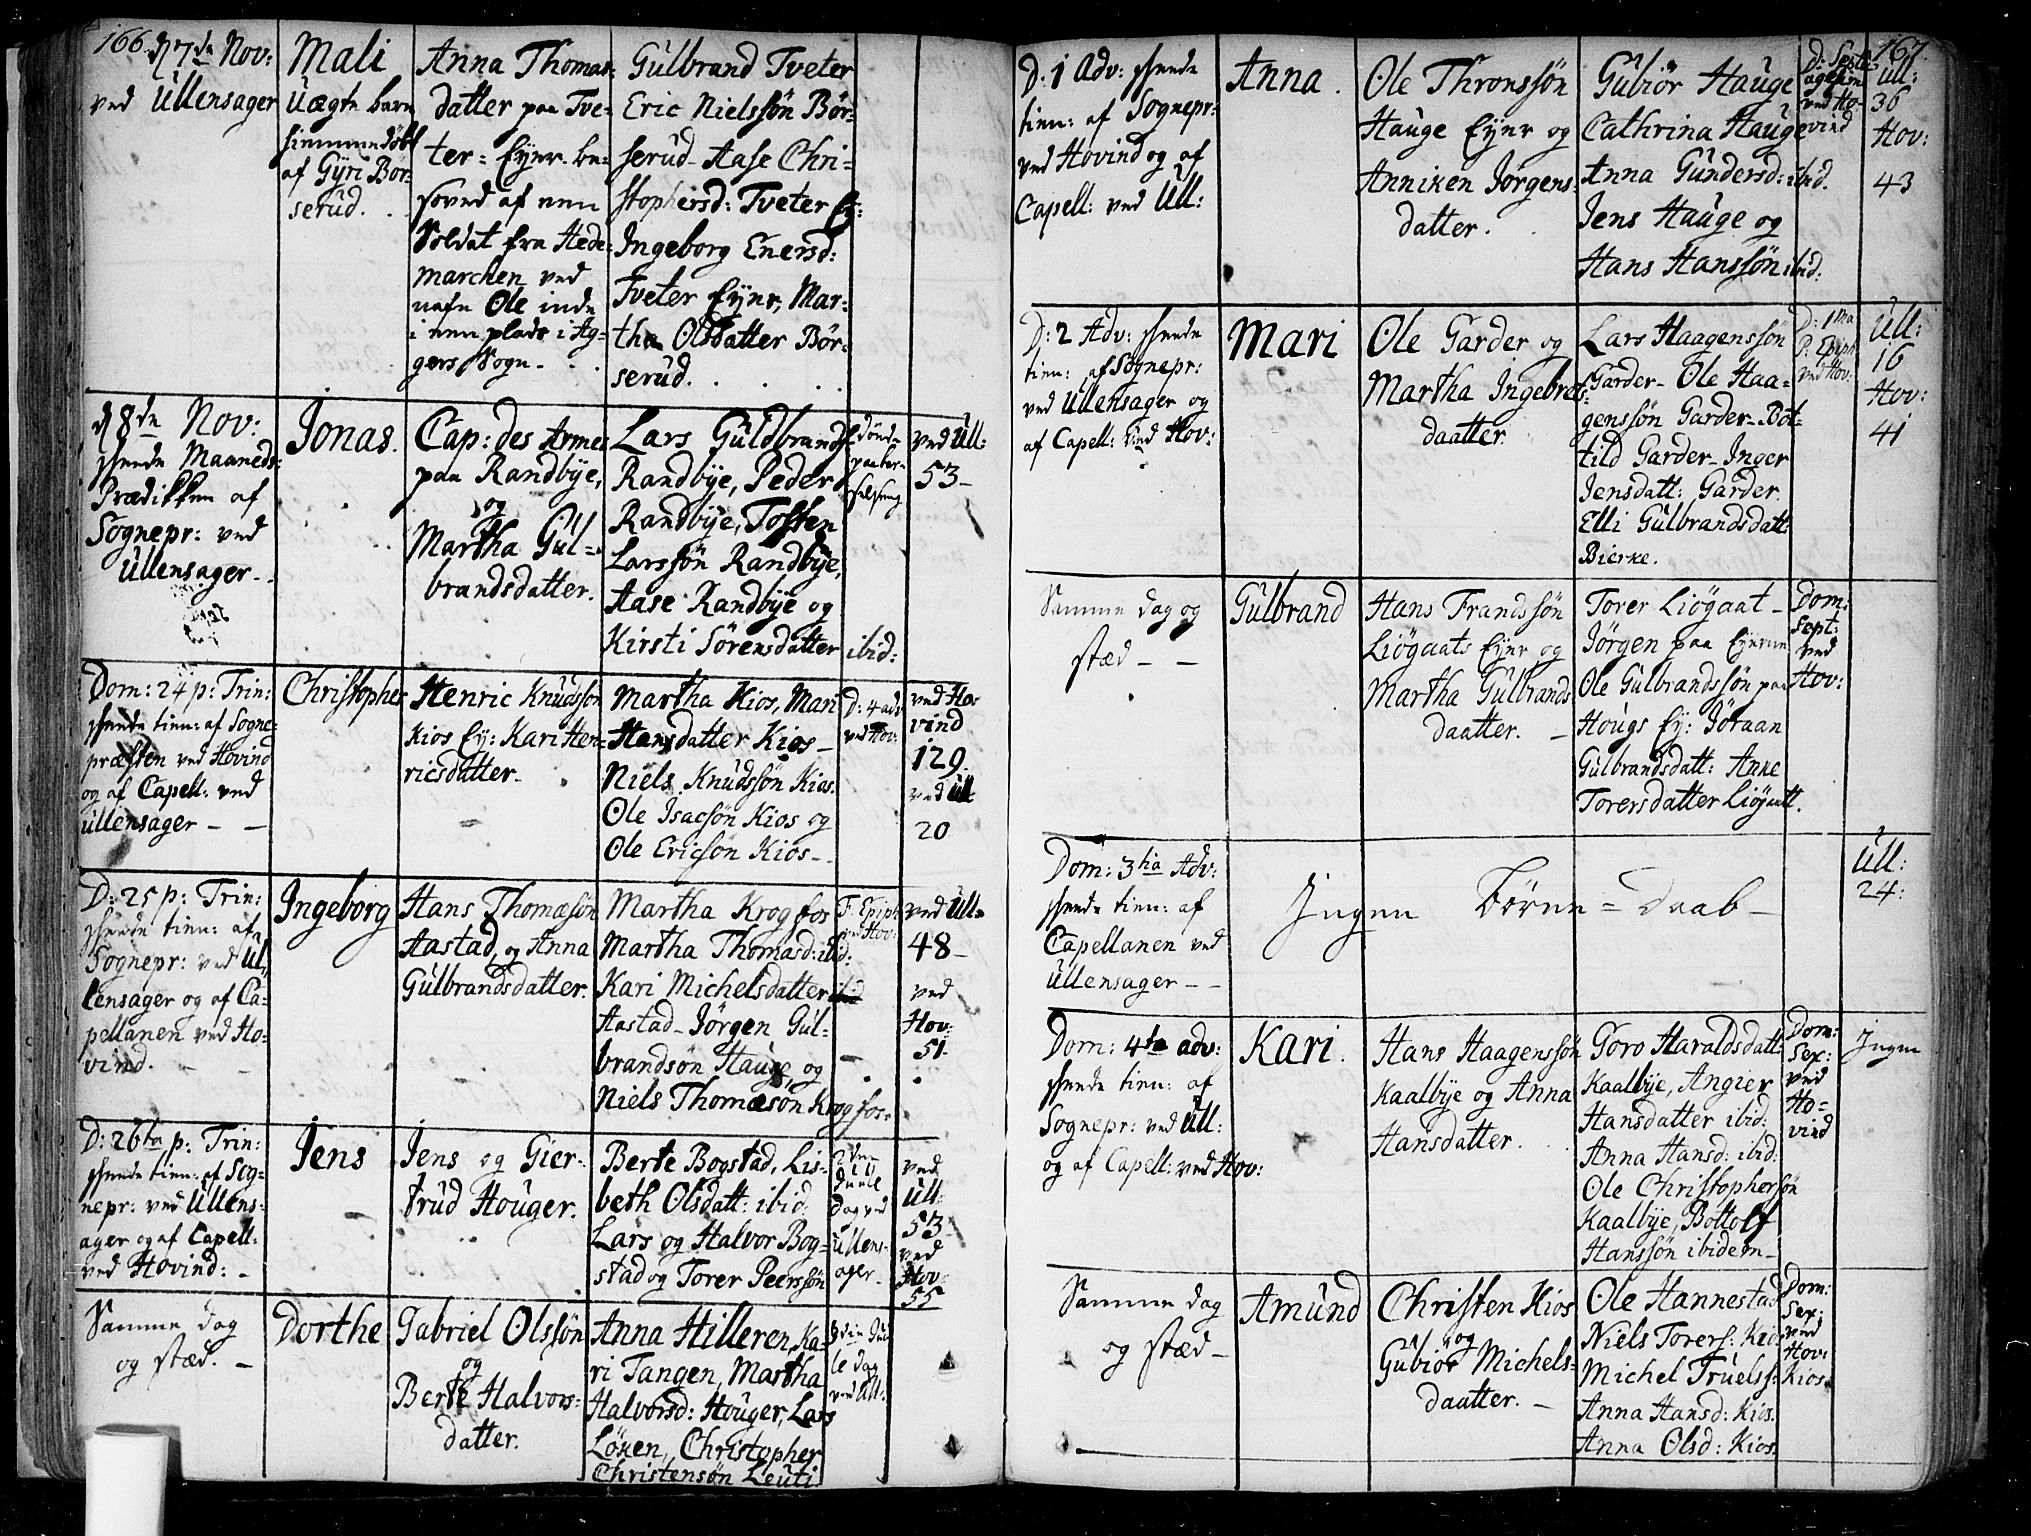 166.
d 7de Nov:
ved Ullensager
Mali
Uægte barn
hiemmedøbt
af Gÿri Bør-
serud.
Anna Thomas-
datter paa Tve-
ter- Eÿer. be-
soved af een
Soldat fra Hede-
marchen ved
nafn Ole inde
i een plads i Ag-
gers Sogn.
Gulbrand Tveter
Eric Nielssøn Bør-
serud. Aase Chri-
stophersd: Tveter Ey:
Ingeborg Enersd:
Tveter Eÿer, Mar-
tha Olsdatter Bør-
serud.
d 8de Nov:
skeede Maaneds
Prædikken af
Sognepr: ved
Ullensager.
Jonas.
Cap: des Armes
paa Randbÿe,
og
Martha Gul-
brandsdatter.
Lars Guldbrands
Randbÿe, Peder
Randbÿe, Tosten
Larssøn Randbÿe,
Aase Randbÿe og
Kirsti Sörensdatter ibid:
ved Ull:
53
Dom: 24 p: Trin:
skeede tien: af Sogne-
præsten ved Hovind
og af Capell: ved
Ullensager
Christopher
Henric Knudssøn
Kios Eÿ: Kari Hen-
ricsdatter.
Martha Kios, Mari
Hansdatter Kios
Niels Knudssøn Kios.
Ole Isacsøn Kios og
Ole Ericsøn Kios
D: 4 adv
ved Hov:
ved Ho-
vind
129.
ved Ull:
20
D: 25 p: Trin:
skeede tien: af
Sognepr: ved Ul-
lensager og af Ca-
pellanen ved Ho-
vind.
Ingeborg
Hans Thomæsøn
Aastad, og Anna
Gulbrandsdatter.
Martha Krogfos
Martha Thomasd: ibid:
Kari Michelsdatter
Aastad Jørgen Gul-
brandsøn Hauge, og
Niels Thomæsøn Krogfos.
F. Epiph
ved Hov:
ved Ull:
48
ved
Hov:
51.
D: 26ta p: Trin:
skeede tien: af Sog-
nepr: ved Ullens-
ager og af Capell:
ved Hovind:
Jens
Jens og Gier-
trud Houger.
Berte Bogstad, Lis-
beth Olsdatt: ibid:
Lars og Halvor Bog-
stad og Torer Peerssøn
Dag ved
Ullens-
ager
ved
Ull:
53
ved
Hov:
55
Samme dag
og stæd.
Dorthe
Gabriel Olssøn
og
Berte Halvors-
datter.
Anna Hilleren, Ka-
ri Tangen, Martha
Halvorsd: Houger, Lars
Löken, Christopher
Christensøn Leuti
le dag
ved Ull.
167.
D: 1 Adv: skeede
tien: af Sognepr:
ved Hovind og af
Capell: ved Ull:
Anna.
Ole Thronssøn
Hauge Eÿer og
Anniken Jørgens-
datter.
Gubiør Hauge
Cathrina Hauge
Anna Gundersd: ibid.
Jens Hauge og
Hans Hanssøn ibid.
ved Ho-
vind
Ull:
36
Hov:
43
D: 2 Adv: skeede
tien: af Sognepr:
ved Ullensager og
af Capell: ved Hov:
Mari
Ole Garder og
Martha Ingebrets-
daatter.
Lars Haagenssøn
Garder- Ole Haa-
genssøn Garder-Bot-
tild Garder- Inger
Jensdatt: Garder.
Elli Gulbrandsdatt:
Bierke.
D: 1ma
P: Epiph
ved Hov:
Ull:
16
Hov:
41
Samme dag og
stæd
Gulbrand
Hans Frandssøn
Liøgaats Eÿer og
Martha Gulbrands
daatter.
Torer Liøgaat
Jørgen paa Eÿerne
Ole Gulbrandssøn paa
Hougs Eÿ: Jøraan
Gulbrandsdatt: Anne
Torersdatter Liøgatt.
Dom:
Sept:
ved
Hov:
Dom: 3tia Adv:
skeede tien: af
Capellanen ved
Ullensager
Ingen Børne-Daab
Ull:
24:
Dom: 4ta adv:
skeede tien: af
Sognepr: ved Ull:
og af Capell: ved Hov:
Kari.
Hans Haagenssøn
Kaalbÿe og Anna
Hansdatter.
Goro Haraldsdatt:
Kaalbÿe, Angier
Hansdatter ibid:
Anna Hansd: ibid:
Ole Christophersøn
Kaalbÿe, Bottolf
Hanssøn ibidem
Dom:
Sex:
ved
Ho-
vind
Ingen
Samme dag
og stæd
Amund
Christen Kios
og
Gubiør Michels-
daatter.
Ole Hannestad
Niels Torers: Kios
Michel Truelss:
Anna Hansd: Kios.
Anna Olsd: Kios.
Dom:
Sex:
ved
Hov:
Kios